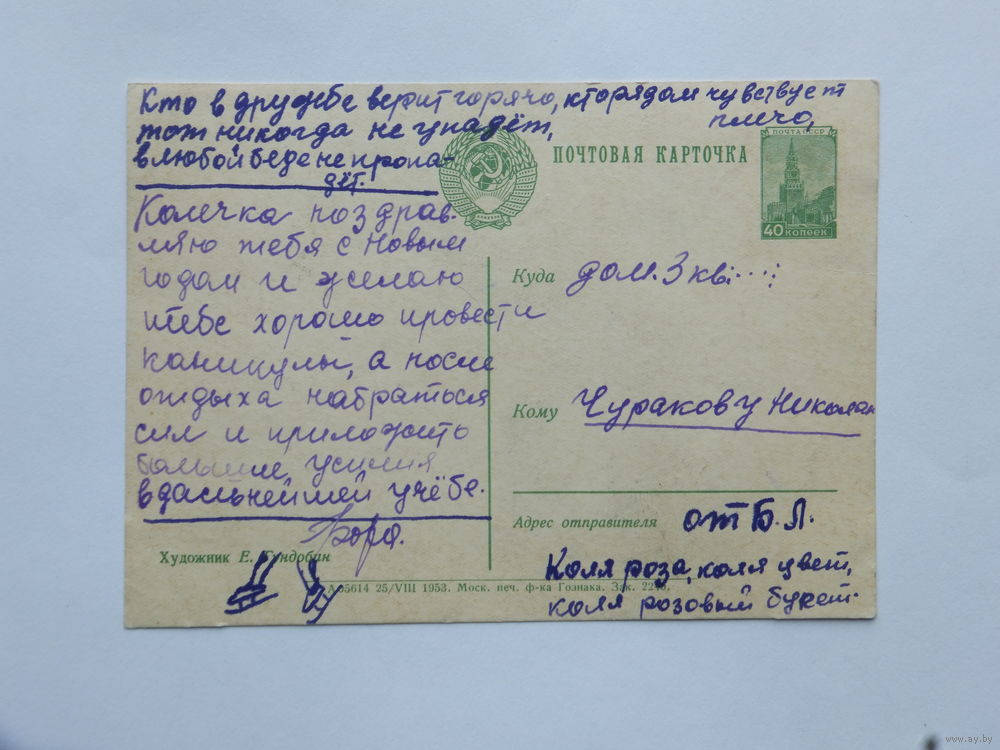 Кто в дружбе верит горячо, кто рядом чувствует
плечо,
тот никогда не упадёт,
в любой беде не пропа-
дёт.
ПОЧТА СССР
ПОЧТОВАЯ КАРТОЧКА
40 КОПЕЕК
Колечка поздрав-
ляю тебя с Новым
годом и желаю
тебе хорошо провести
каникулы, а после
отдыха набраться
сил и приложить
больше усилия
в дальнейшей учёбе.
Боря.
Куда дом. 3 кв.
Кому Чуракову Николаю
Адрес отправителя от Б. Л.
Коля роза, коля цвет,
коля розовый букет.
Художник Е. Гундобин
А 05614 25/VIII 1953. Моск. печ. ф-ка Гознака. Зак.
www.ay.by